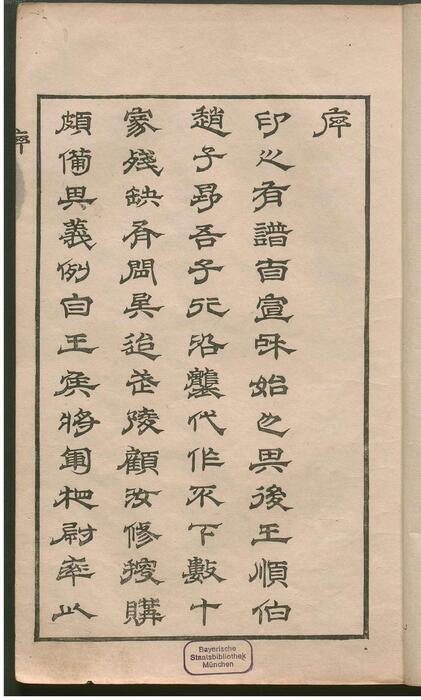 序
印之有譜自宣咊始也其後王順伯
趙子昂吾子行沿襲代作不下數十
家殘缺有間矣迨武陵顧汝修搜購
頗備其義例自王侯將軍尉率以
序
Bayerische
Staatsbibliothek
München